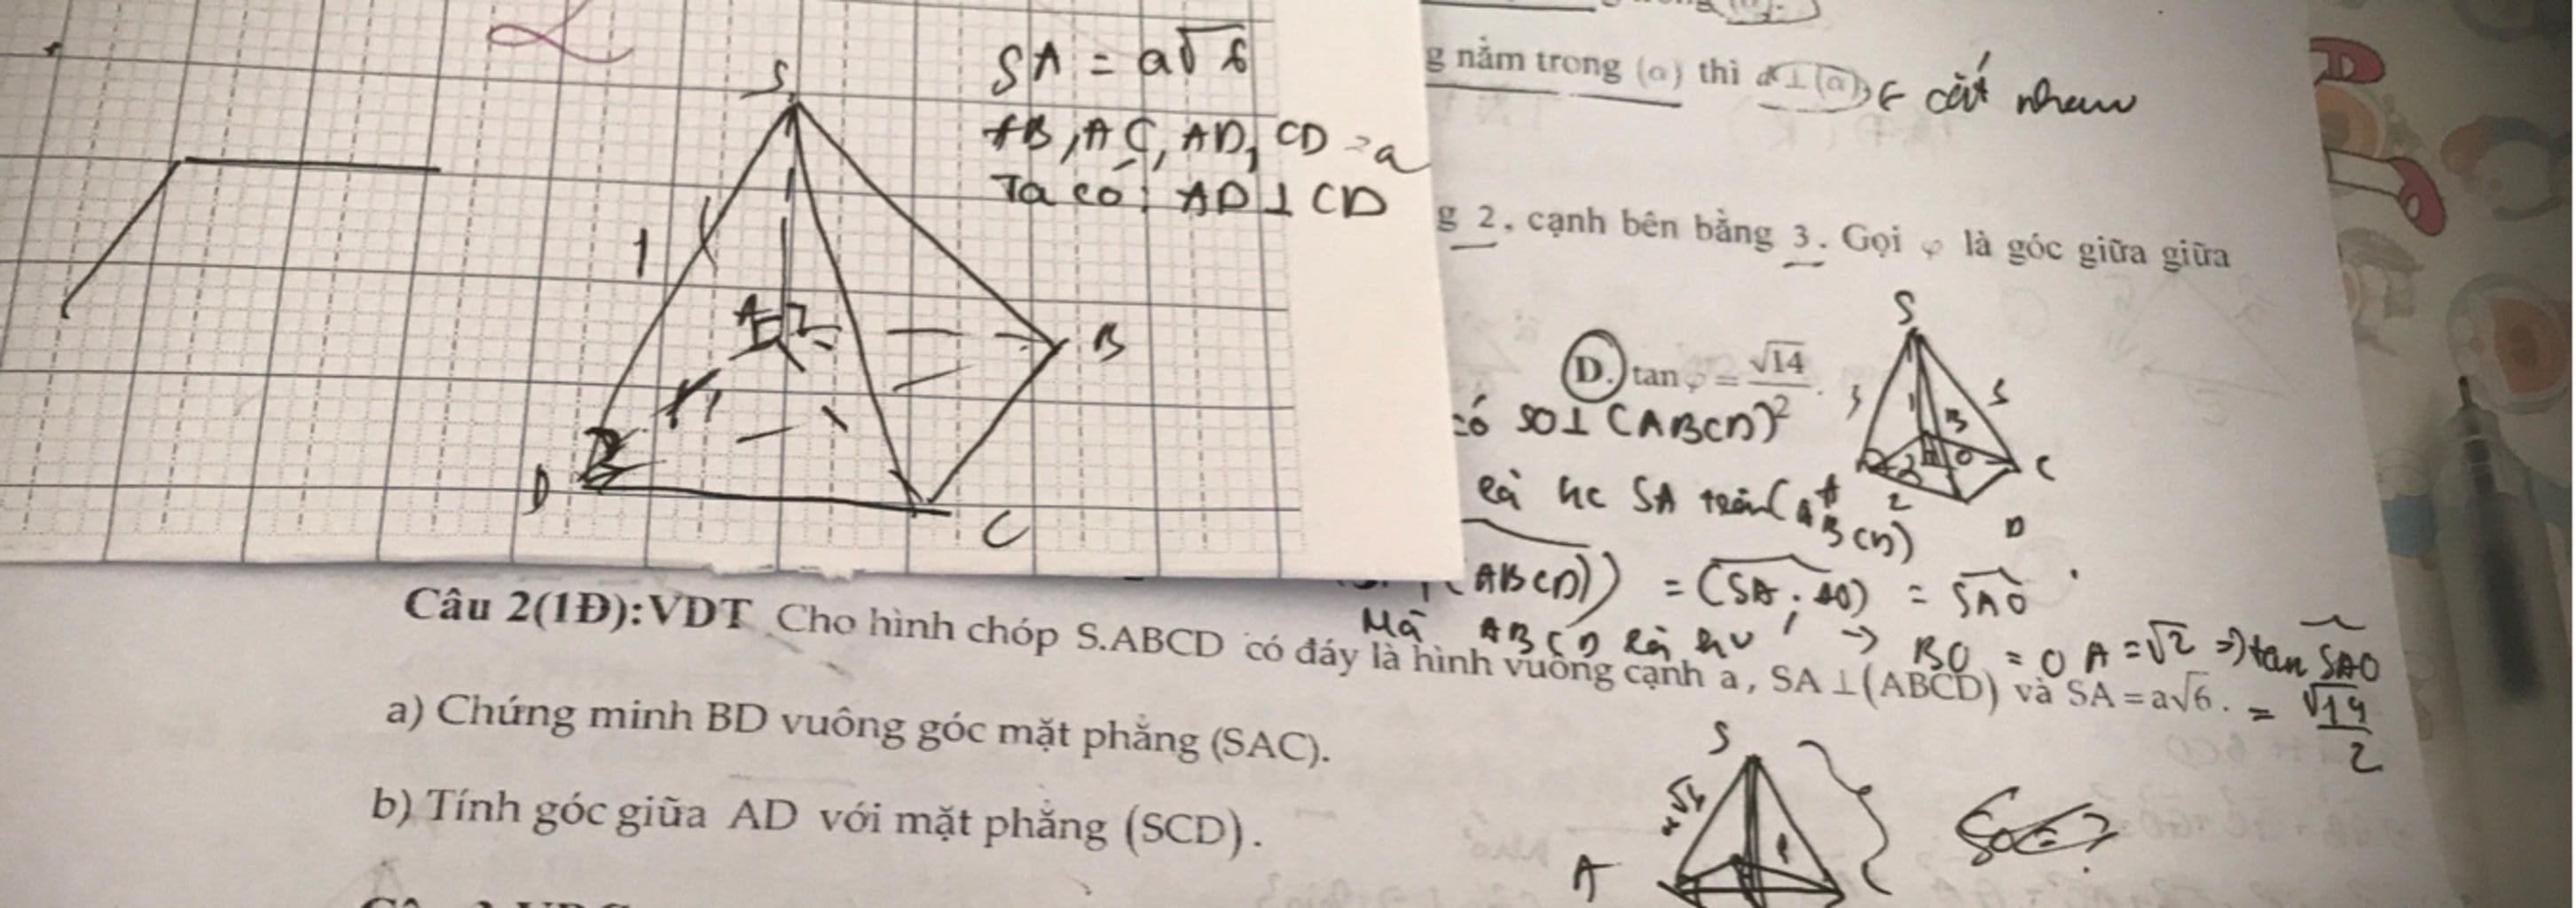 S
SA = a√6
AB, AC, AD, CD = a
Ta có: AD ⊥ CD
1
A
B
D
C
g nằm trong (α) thì d ⊥ (α) cắt nhau
g 2, cạnh bên bằng 3. Gọi φ là góc giữa giữa
D. tan φ = √14/2.
S
B
O
C
2
D
có SO ⊥ (ABCD)
là hc SA trên (ABCD)
(ABCD)) = (SA, AO) = SAO
Mà ABCD là hv → BO = OA = √2 ⇒ tan SAO
= √14/2
Câu 2(1Đ):VDT Cho hình chóp S.ABCD có đáy là hình vuông cạnh a, SA ⊥ (ABCD) và SA = a√6.
a) Chứng minh BD vuông góc mặt phẳng (SAC).
b) Tính góc giữa AD với mặt phẳng (SCD).
S
a√6
A